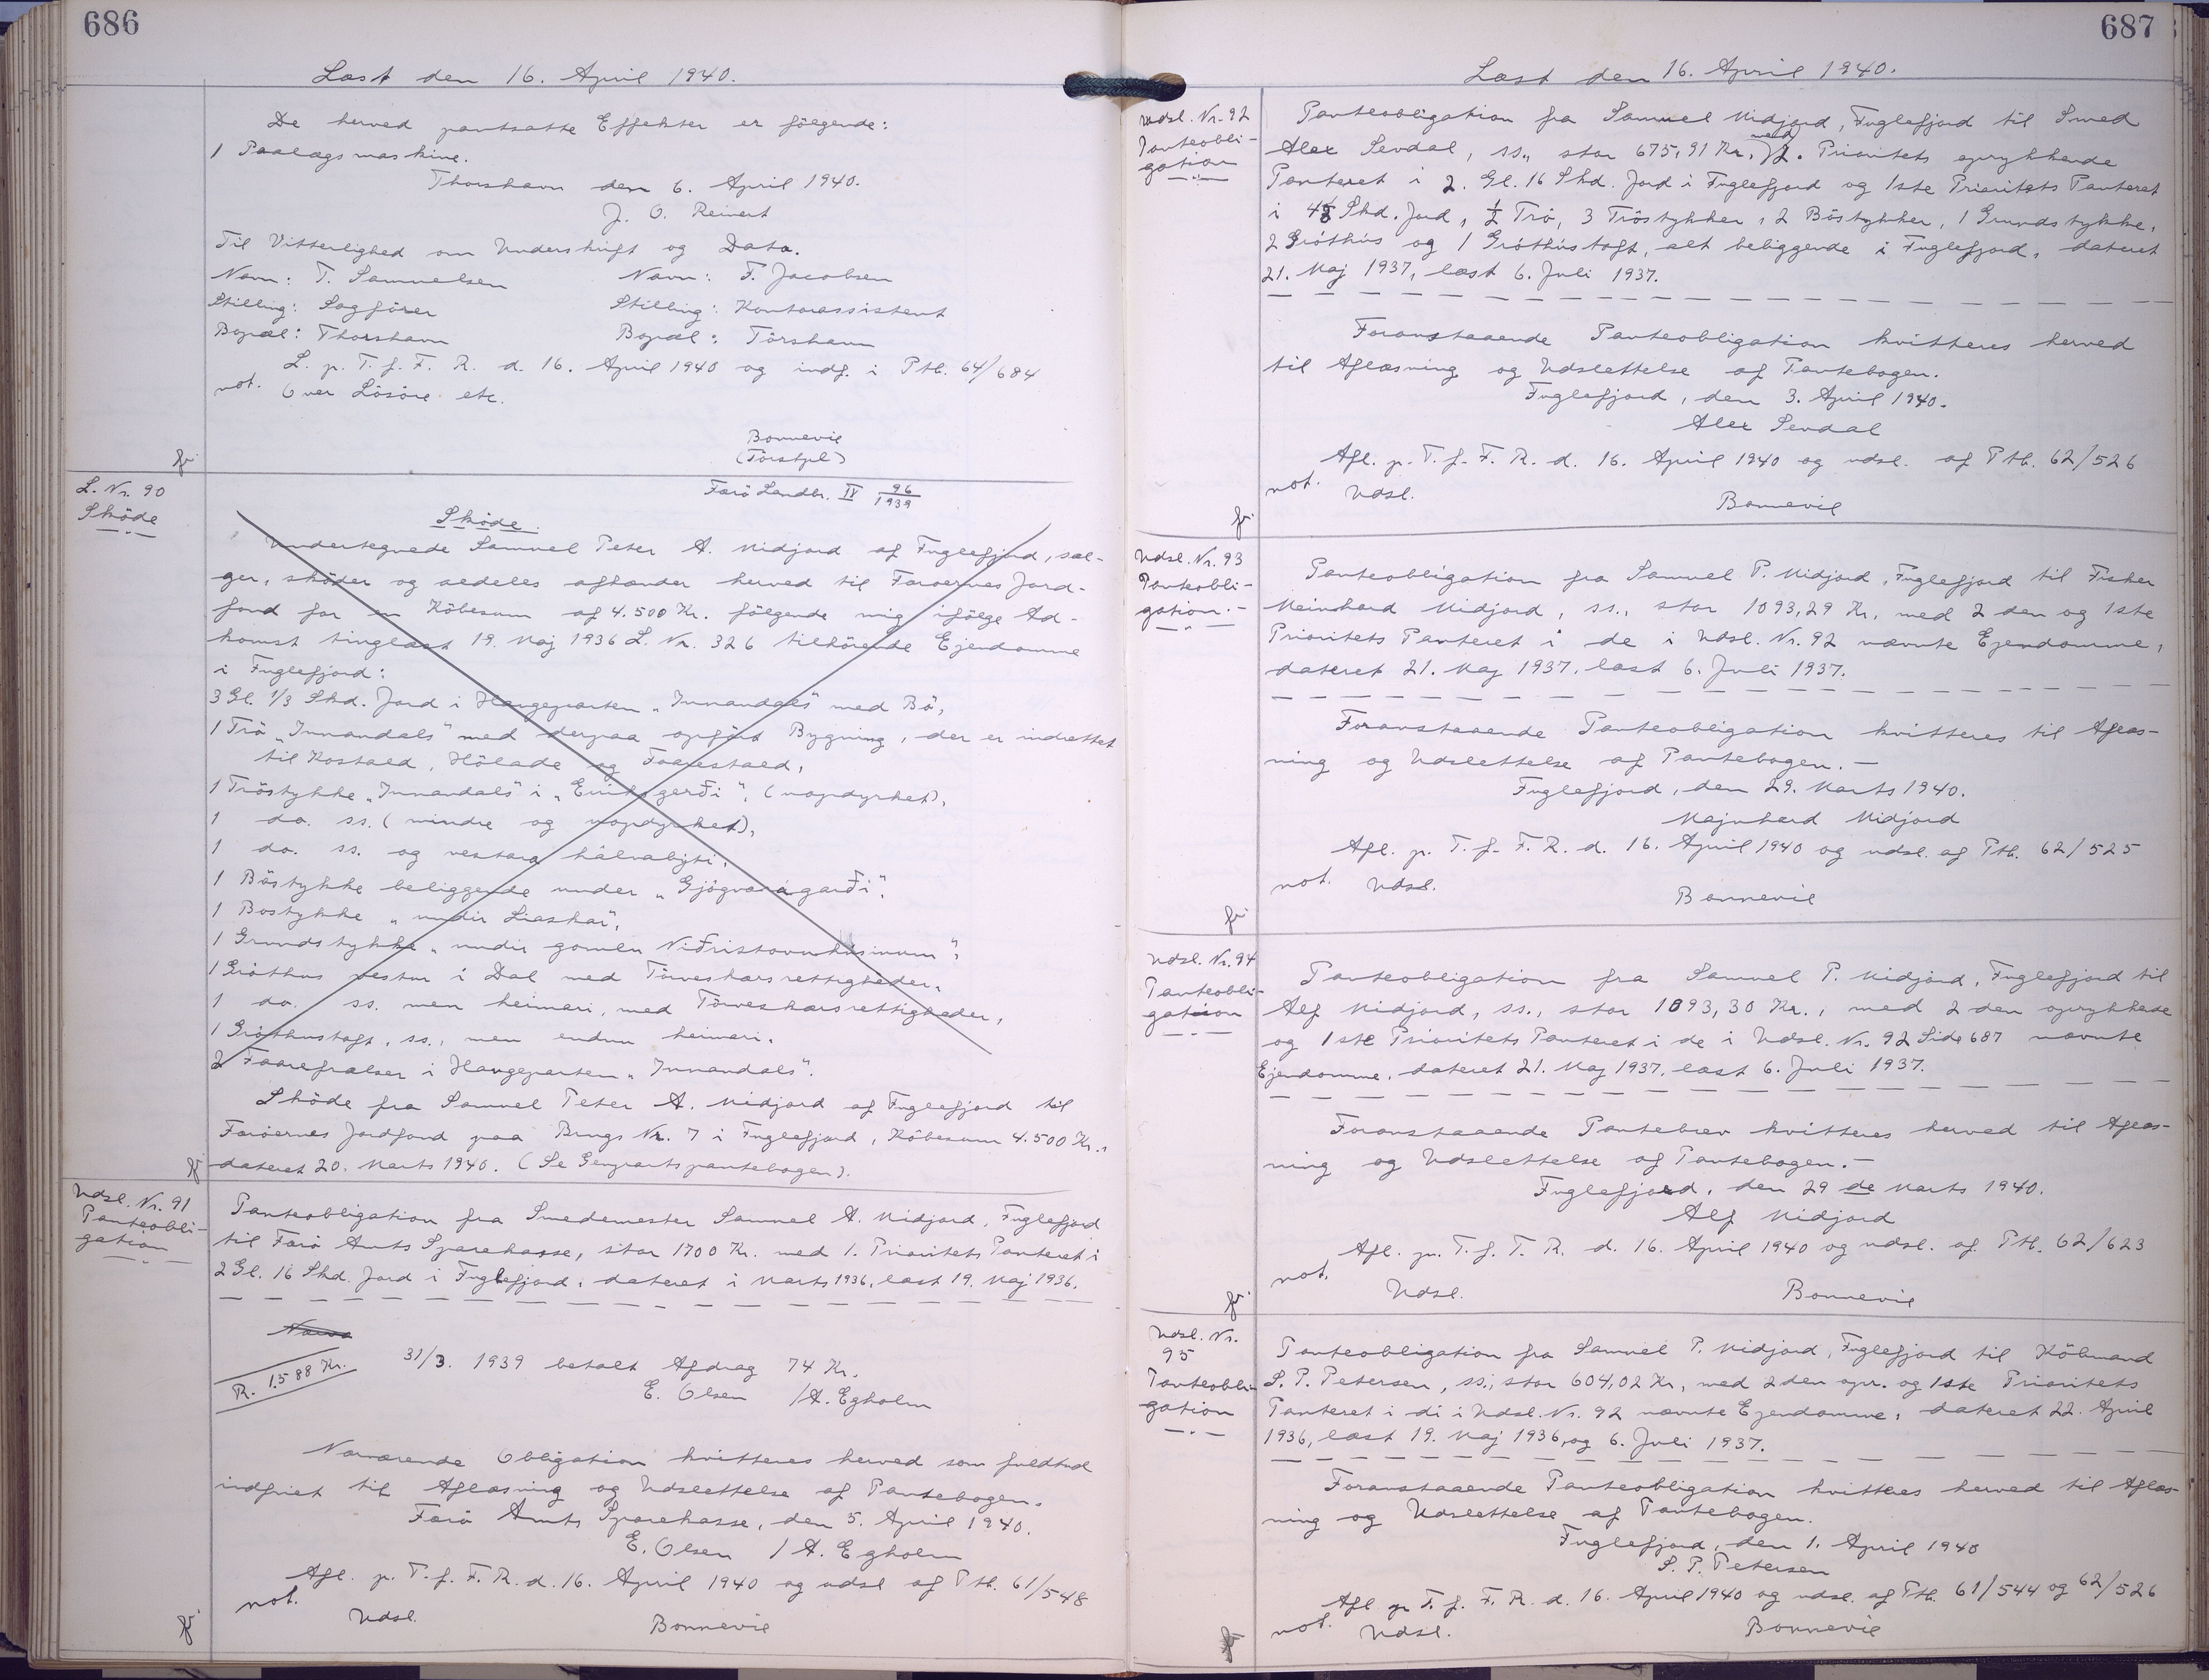 686
Læst den 16. April 1940.
De herved pantsatte Effekter er følgende:
1 Paalægsmaskine.
Thorshavn den 6. April 1940.
J. O. Reinert
Til Vitterlighed om Underskrift og Data.
Navn: T. Samuelsen Navn: F. Jacobsen
Stilling: Sagförer Stilling: Kontorassistent
Bopæl: Thorshavn Bopæl: Tórshavn
L. p. T. f. F. R. d. 16. April 1940 og indf. i Ptb. 64/684
not. Over Lösöre etc.
Bonnevie
L. Nr. 90
Sköde
Færö Landbr. IV 96/1939
Sköde.
Undertegnede Samuel Peter A. Midjord af Fuglefjord, sæl-
ger, sköder og aldeles afhænder herved til Færøernes Jord-
fond for en Köbesum af 4.500 Kr. fölgende mig ifölge Ad-
komst tinglæst 19. Maj 1936 L. Nr. 326 tilhörende Ejendomme
i Fuglefjord:
3 Gl. 1/3 Skd. Jord i Haugeparten „Innandals" med Bö,
1 Trö „Innandals" med derpaa opfört Bygning, der er indrettet
til Kostald, Hölade og Faarestald,
1 Tröstykke „Innandals" i (uopdyrket),
1 do. ss. (mindre og uopdyrket),
1 do. ss. og vestara hálvabýti,
1 Böstykke beliggende under „Gjógvarágarði",
1 Bostykke „undir Liaskar",
1 Grundstykke „undir gomlu Niðristovuhúsinum",
1 Gróthus vestur í Dal med Törveskærsrettigheder,
1 do. ss. men heimari, med Törveskærsrettigheder,
1 Gróthustoft, ss., men endnu heimari.
2 Faarefrælser i Haugeparten „Innandals".
Sköde fra Samuel Peter A. Midjord af Fuglefjord til
Færöernes Jordfond paa Brugs Nr. 7 i Fuglefjord, Köbesum 4.500 Kr.,
dateret 20. Marts 1940. (Se Genpartspantebogen).
Udsl. Nr. 91
Panteobli-
gation
Panteobligation fra Smedemester Samuel A. Midjord, Fuglefjord
til Færö Amts Sparekasse, stor 1700 Kr. med 1. Prioritets Panteret i
2 Gl. 16 Skd. Jord i Fuglefjord, dateret i Marts 1936, læst 19. Maj 1936.
R. 1.588 Kr.
31/3. 1939 betalt Afdrag 74 Kr.
E. Olsen /A. Egholm
Nærværende Obligation kvitteres herved som fuldtud
indfriet til Aflæsning og Udslettelse af Pantebogen.
Færö Amts Sparekasse, den 5. April 1940.
E. Olsen / A. Egholm
Afl. p. T. f. F. R. d. 16. April 1940 og udsl af Ptb. 61/548
not.
Udsl. Bonnevie
687
Læst den 16. April 1940.
Udsl. Nr. 92
Panteobli-
gation
Panteobligation fra Samuel Midjord, Fuglefjord til Smed
Alex Sevdal, ss., stor 675,91 Kr. med 2. Prioritets oprykkende
Panteret i 2. Gl. 16 Skd. Jord i Fuglefjord og 1ste Prioritets Panteret
i Skd. Jord, ½ Trö, 3 Tröstykker, 2 Böstykker, 1 Grundstykke,
2 Gróthús og 1 Gróthústoft, alt beliggende i Fuglefjord, dateret
21. Maj 1937, læst 6. Juli 1937.
Foranstaaende Panteobligation kvitteres herved
til Aflæsning og Udslettelse af Pantebogen.
Fuglefjord, den 3. April 1940.
Alex Sevdal
Afl. p. T. f. F. R. d. 16. April 1940 og udsl. af Ptb. 62/526
not. Udsl. Bonnevie
Udsl. Nr. 93
Panteobli-
gation.-
Panteobligation fra Samuel P. Midjord, Fuglefjord til Fisker
Meinhard Midjord, ss., stor 1093,29 Kr, med 2 den og 1ste
Prioritets Panteret i de i Udsl. Nr. 92 nævnte Ejendomme,
dateret 21. Maj 1937, læst 6. Juli 1937.
Foranstaaende Panteobligation kvitteres til Aflæs-
ning og Udslettelse af Pantebogen.-
Fuglefjord, den 29. Marts 1940.
Majnhard Midjord
Afl. p. T. f. F. R. d. 16. April 1940 og udsl. af Ptb. 62/525
not. Udsl.
Bonnevie
Udsl. Nr. 94
Panteobli-
gation
Panteobligation fra Samuel P. Midjord, Fuglefjord til
Alf Midjord, ss., stor 1093,30 Kr., med 2 den oprykkede
og 1ste Prioritets Panteret i de i Udsl. Nr. 92 Side 687 nævnte
Ejendomme, dateret 21. Maj 1937, læst 6. Juli 1937.
Foranstaaende Pantebrev kvitteres herved til Aflæs-
ning og Udslettelse af Pantebogen.-
Fuglefjord, den 29 de Marts 1940.
Alf Midjord
Afl. p. T. f. F. R. d. 16. April 1940 og udsl. af Ptb. 62/623
not.
Udsl. Bonnevie
Udsl. Nr.
95
Panteobli-
gation
Panteobligation fra Samuel P. Midjord, Fuglefjord til Köbmand
S. P. Petersen, ss., stor 604,02 Kr, med 2 den opr. og 1ste Prioritets
Panteret i di i Udsl. Nr. 92 nævnte Ejendomme, dateret 22. April
1936, læst 19. Maj 1936, og 6. Juli 1937.
Foranstaaende Panteobligation kvitteres herved til Aflæs-
ning og Udslettelse af Pantebogen.
Fuglefjord, den 1. April 1940
S. P. Petersen
Afl. p. T. f. F. R. d. 16. April 1940 og udsl. af Ptb. 61/544 og 62/526
not. Udsl. Bonnevie